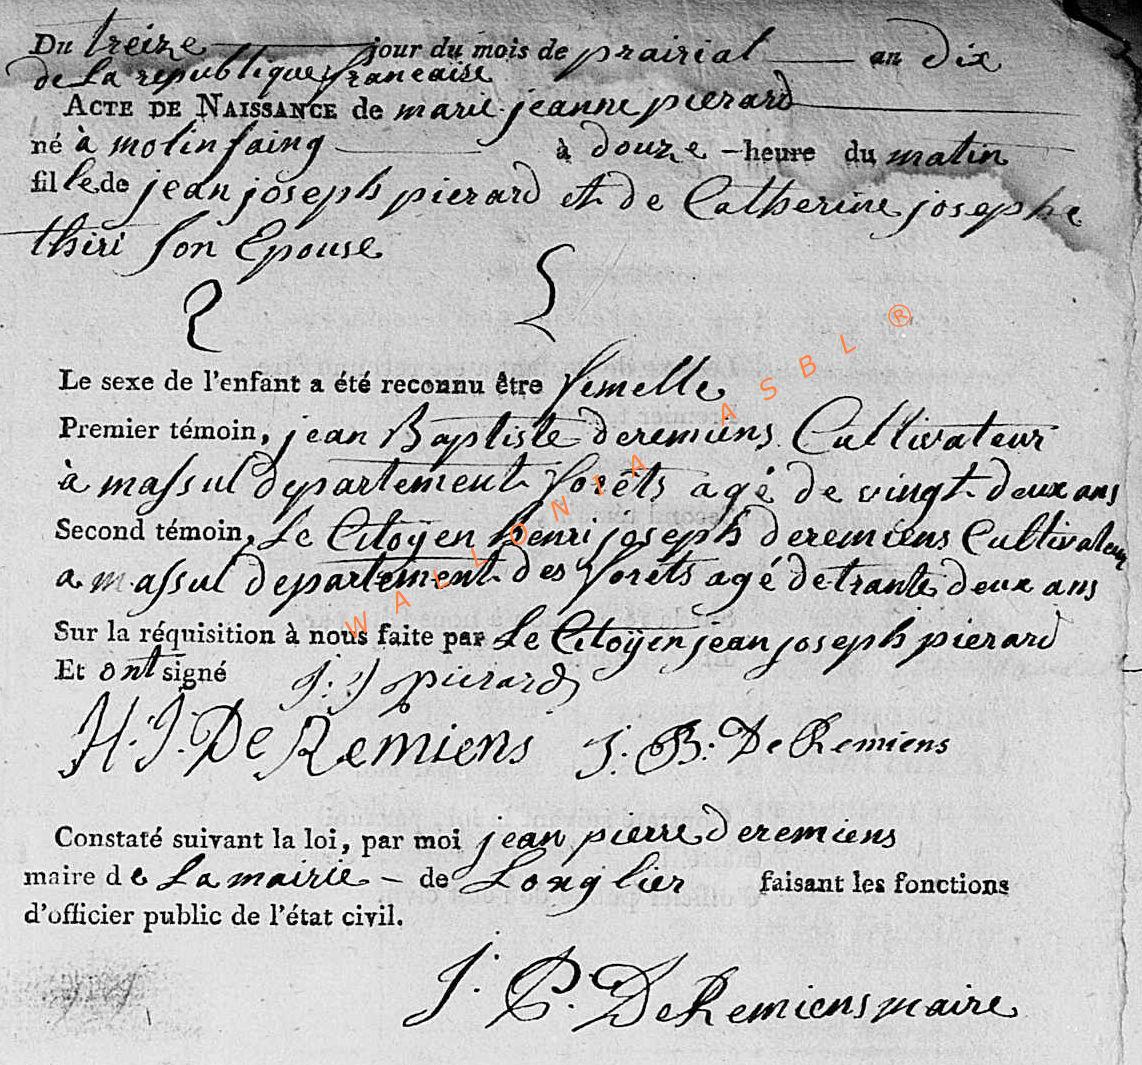 Du treize jour du mois de prairial an dix
de La republique francaise
ACTE DE NAISSANCE de marie jeanne pierard
né à molinfaing à douze - heure du matin
fille de jean joseph pierard et de Catherine josephe
thiri son Epouse
Le sexe de l'enfant a été reconnu être femelle
Premier témoin, jean Baptiste deremiens Cultivateur
à massul departement forêts agé de vingt deux ans
Second témoin, Le Citoÿen henri joseph deremiens Cultivateur
a massul departement des forêts agé de trante deux ans
Sur la réquisition à nous faite par Le Citoÿen jean joseph pierard
Et ont signé J. J pierard
H. J. De Remiens J. B. De Remiens
Constaté suivant la loi, par moi jean pierre deremiens
maire de La mairie - de Longlier faisant les fonctions
d'officier public de l'état civil.
J. P. DeRemiens maire
WALLONIA ASBL ®